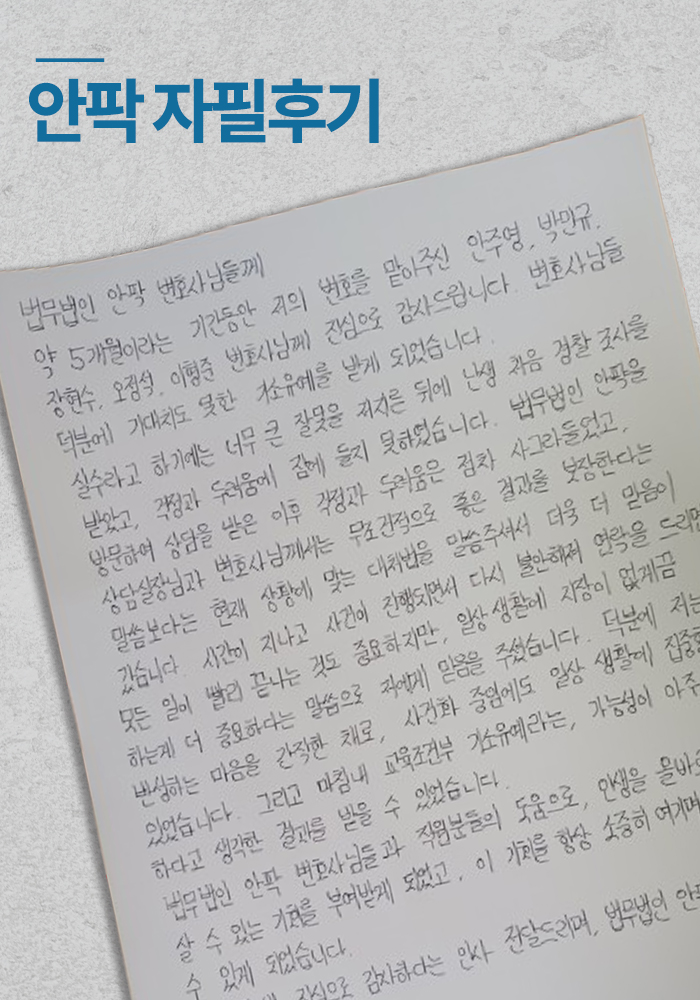 안팍 자필후기
법무법인 안팍 변호사님들께
약 5개월이라는 기간동안 저의 변호를 맡아주신 안주영, 박민규,
장현수, 오정석, 이형준 변호사님께 진심으로 감사드립니다. 변호사님들
덕분에 기대치도 못한 기소유예를 받게 되었습니다.
실수라고 하기에는 너무 큰 잘못을 저지른 뒤에 난생 처음 경찰 조사를
받았고, 걱정과 두려움에 잠에 들지 못하였습니다. 법무법인 안팍을
방문하여 상담을 받은 이후 걱정과 두려움은 점차 사그라들었고,
상담실장님과 변호사님께서는 무조건적으로 좋은 결과를 보장한다는
말씀보다는 현재 상황에 맞는 대처법을 말씀주셔서 더욱 더 믿음이
갔습니다. 시간이 지나고 사건이 진행되면서 다시 불안해져 연락을 드리면
모든 일이 빨리 끝나는 것도 중요하지만, 일상 생활에 지장이 없게끔
하는게 더 중요하다는 말씀으로 저에게 믿음을 주셨습니다. 덕분에 저는
반성하는 마음을 간직한 채로, 사건화 중임에도 일상 생활에 집중할
있었습니다. 그리고 마침내 교육조건부 기소유예라는, 가능성이 아주
하다고 생각한 결과를 받을 수 있었습니다.
법무법인 안팍 변호사님들과 직원분들의 도움으로, 인생을 올바로
살 수 있는 기회를 부여받게 되었고, 이 기회를 항상 소중히 여기며
수 있게 되었습니다.
진심으로 감사하다는 인사 전달드리며, 법무법인 안팍